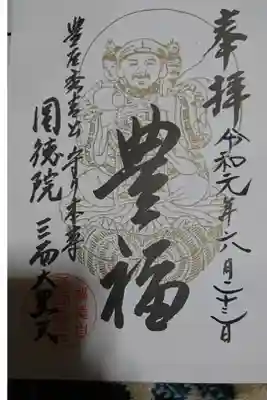 奉拝
令和元年六月二十三日
豊福
豊臣秀吉公守り本尊
三面大黒天
圓徳院